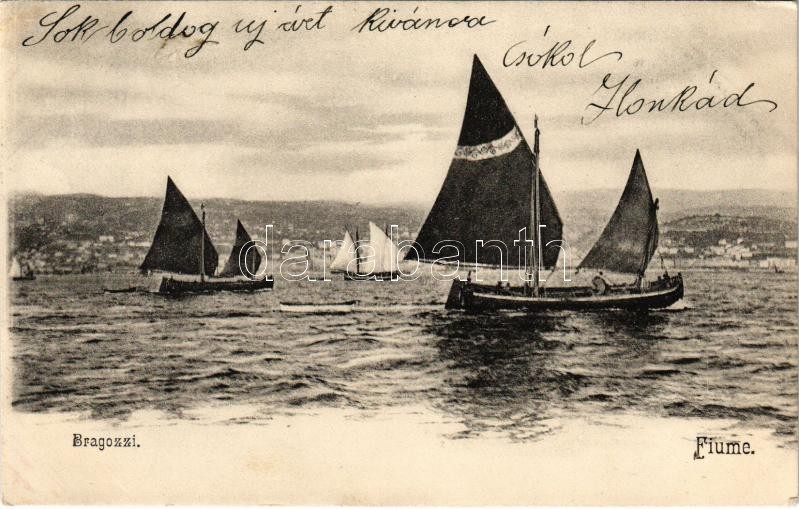 Sok boldog uj évet kivánva
Csókol
Ilonkád
darabanth
Bragozzi.
Fiume.